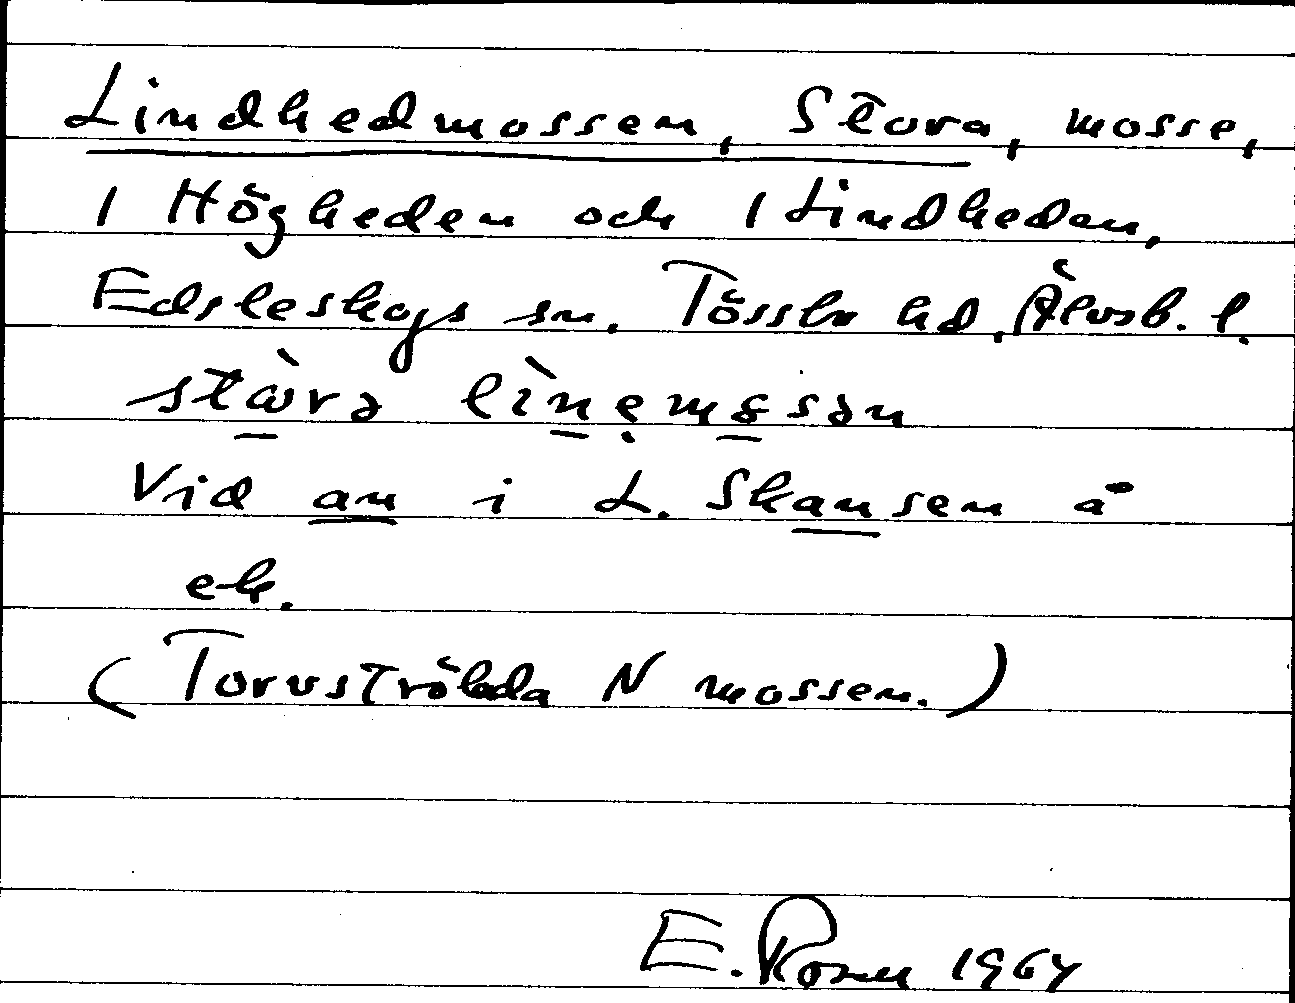 Lindhedmossen, Stora, mosse,
1 Högheden och 1 Lindheden,
Edsleskogs sn. Tössbo hd, Älvsb. l.
Vid an i L. Skansen å
ek.
(Torvströbda N mossen.)
E. Rosen 1964